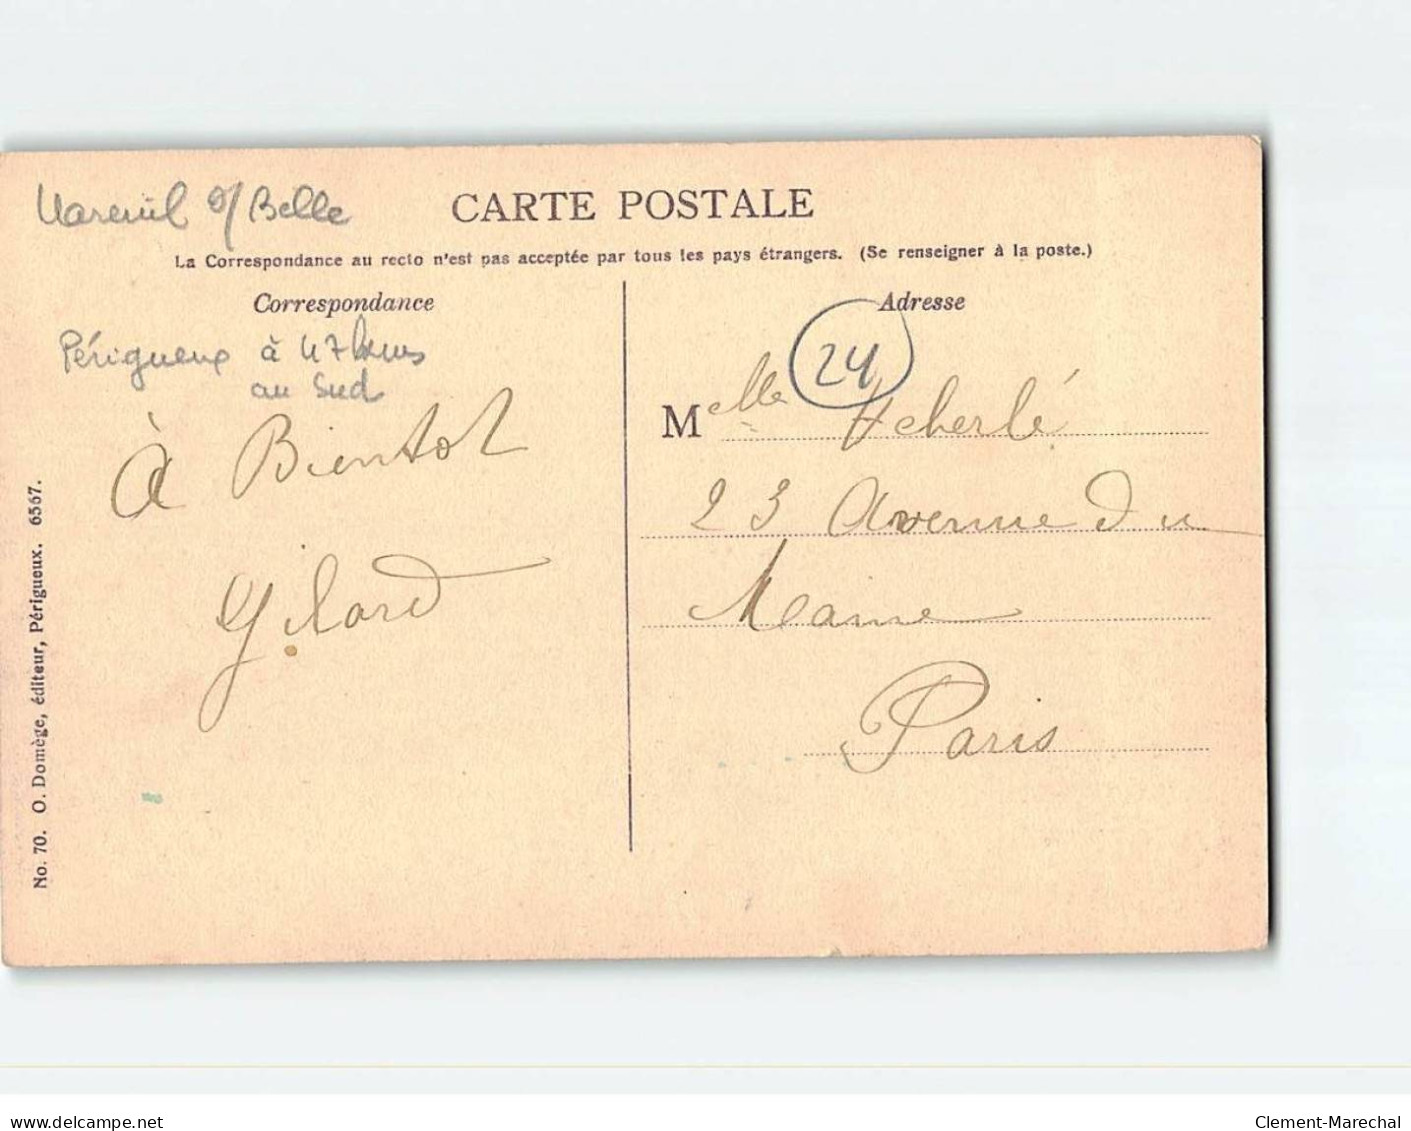 Mareuil s/ Belle
CARTE POSTALE
La Correspondance au recto n'est pas acceptée par tous les pays étrangers. (Se renseigner à la poste.)
Correspondance
Périgueux à 47 kms
au Sud
À Bientot
Gilard
Adresse
24
Melle Acherlé
23 Avenue Du
Maine
Paris
No. 70. O. Domège, éditeur, Périgueux. 6567.
www.delcampe.net
Clement-Marechal